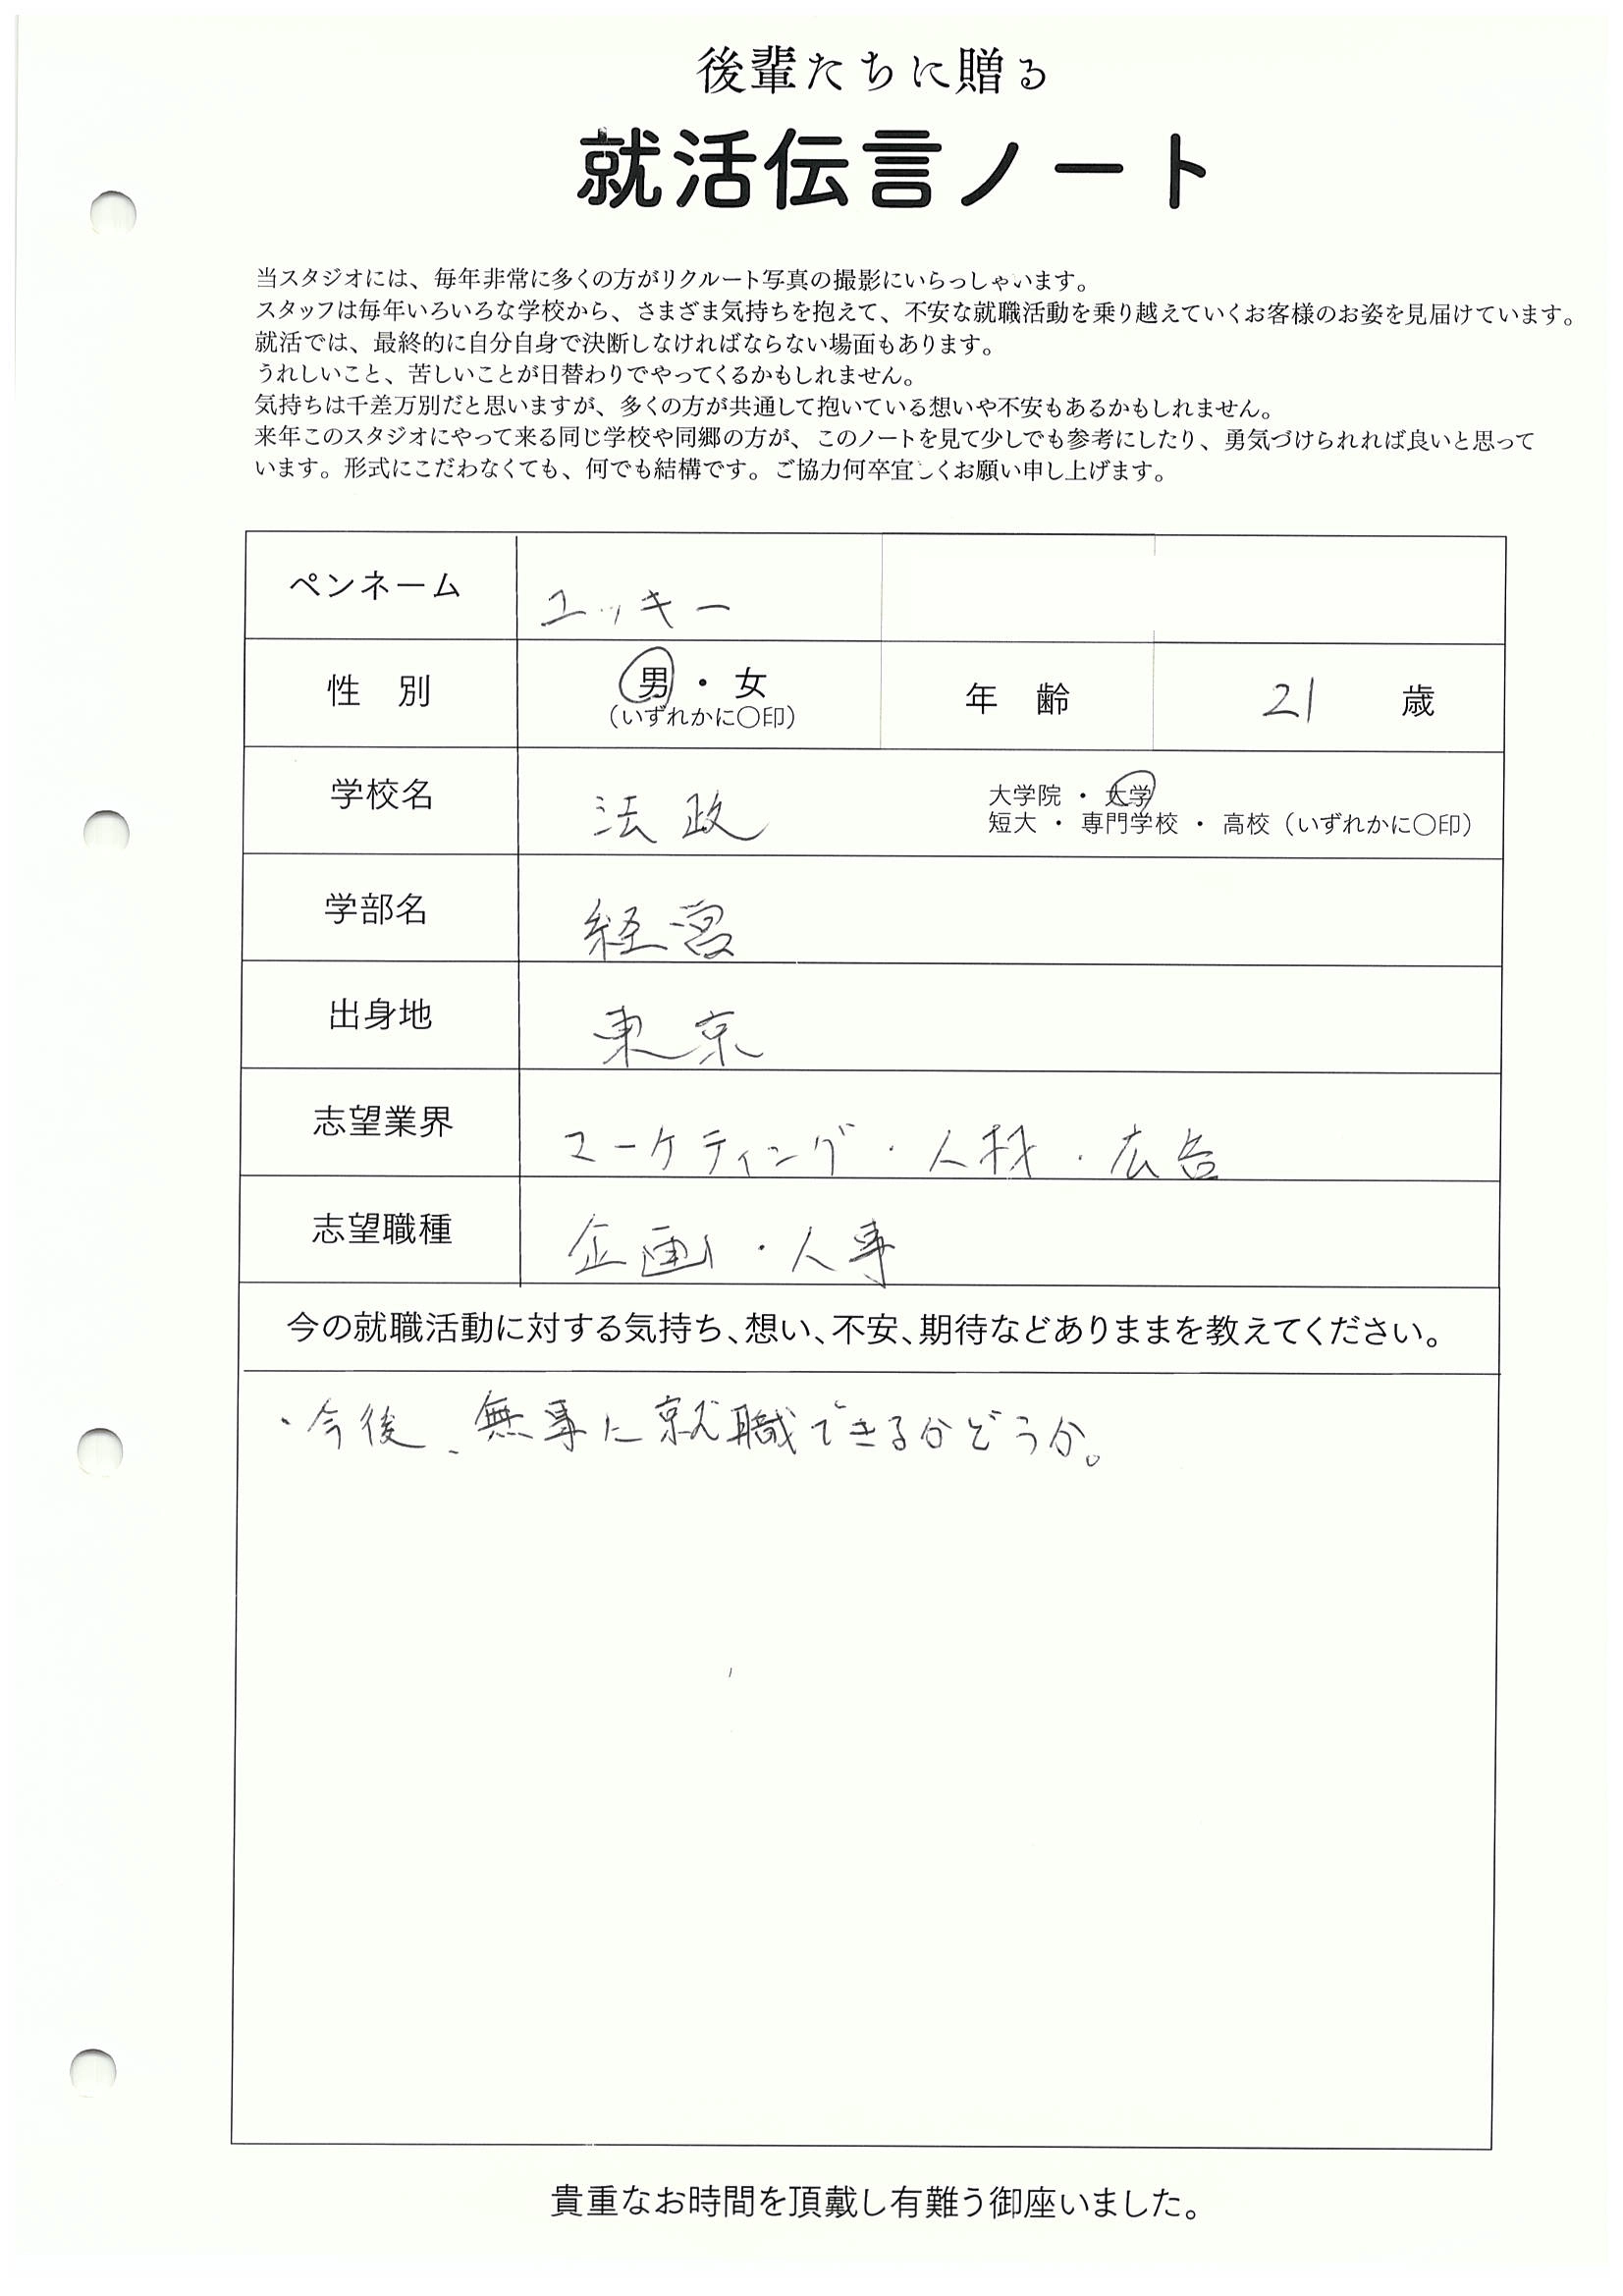 後輩たちに贈る
就活伝言ノート
当スタジオには、毎年非常に多くの方がリクルート写真の撮影にいらっしゃいます。
スタッフは毎年いろいろな学校から、さまざま気持ちを抱えて、不安な就職活動を乗り越えていくお客様のお姿を見届けています。
就活では、最終的に自分自身で決断しなければならない場面もあります。
うれしいこと、苦しいことが日替わりでやってくるかもしれません。
気持ちは千差万別だと思いますが、多くの方が共通して抱いている想いや不安もあるかもしれません。
来年このスタジオにやって来る同じ学校や同郷の方が、このノートを見て少しでも参考にしたり、勇気づけられれば良いと思って
います。形式にこだわなくても、何でも結構です。ご協力何卒宜しくお願い申し上げます。
ペンネーム ユッキー
性 別 男 ・ 女 年 齢 21 歳
(いずれかに〇印)
学校名 法政 大学院 ・ 大学
短大 ・ 専門学校 ・ 高校 (いずれかに〇印)
学部名 経営
出身地 東京
志望業界 マーケティング・人材・広告
志望職種 企画・人事
今の就職活動に対する気持ち、想い、不安、期待などありままを教えてください。
・今後、無事に就職できるかどうか。
貴重なお時間を頂戴し有難う御座いました。